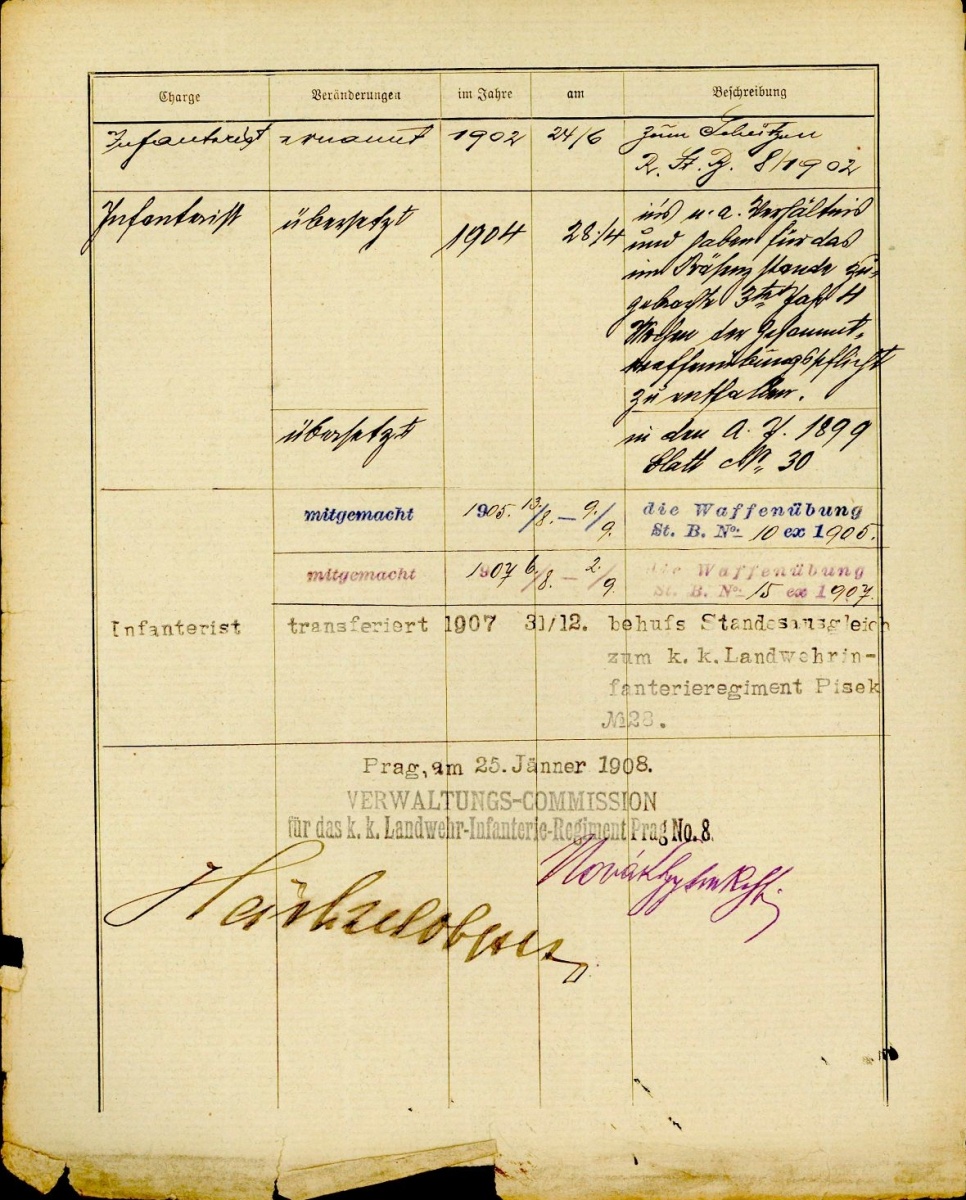 Charge Veränderungen im Jahre am Beschreibung
Infanterist ernannt 1902 24/6 zum Schützen
R. St. B. 8/1902
Infanterist übersetzt 1904 28/4 ins n. a. Verhältnis
und haben für das
im Präsenzstande zu-
gebrachte 3te Jahr 4
Wochen der Gesammt-
waffenübungspflicht
zu entfallen.
übersetzt in den A. J. 1899
Blatt No. 30
mitgemacht 1905. 13./8. — 9./9. die Waffenübung
St. B. No. 10 ex 1905.
mitgemacht 1907 6./8. — 2./9. die Waffenübung
St. B. No. 15 ex 1907.
Infanterist transferiert 1907 31/12. behufs Standesausgleich
zum k. k. Landwehrin-
fanterieregiment Pisek
№28.
Prag, am 25. Jänner 1908.
VERWALTUNGS-COMMISSION
für das k. k. Landwehr-Infanterie-Regiment Prag No. 8
Novák